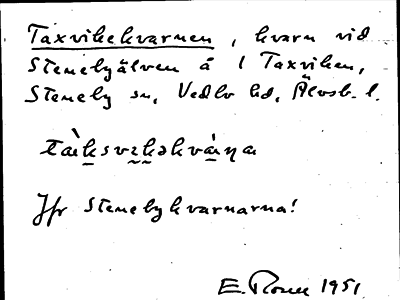 Taxvikekvarnen, kvarn vid
Stenebyälven å l Taxviken,
Steneby sn, Vedbo hd, Älvsb. l.
Jfr Stenebykvarnarna!
E. 1951